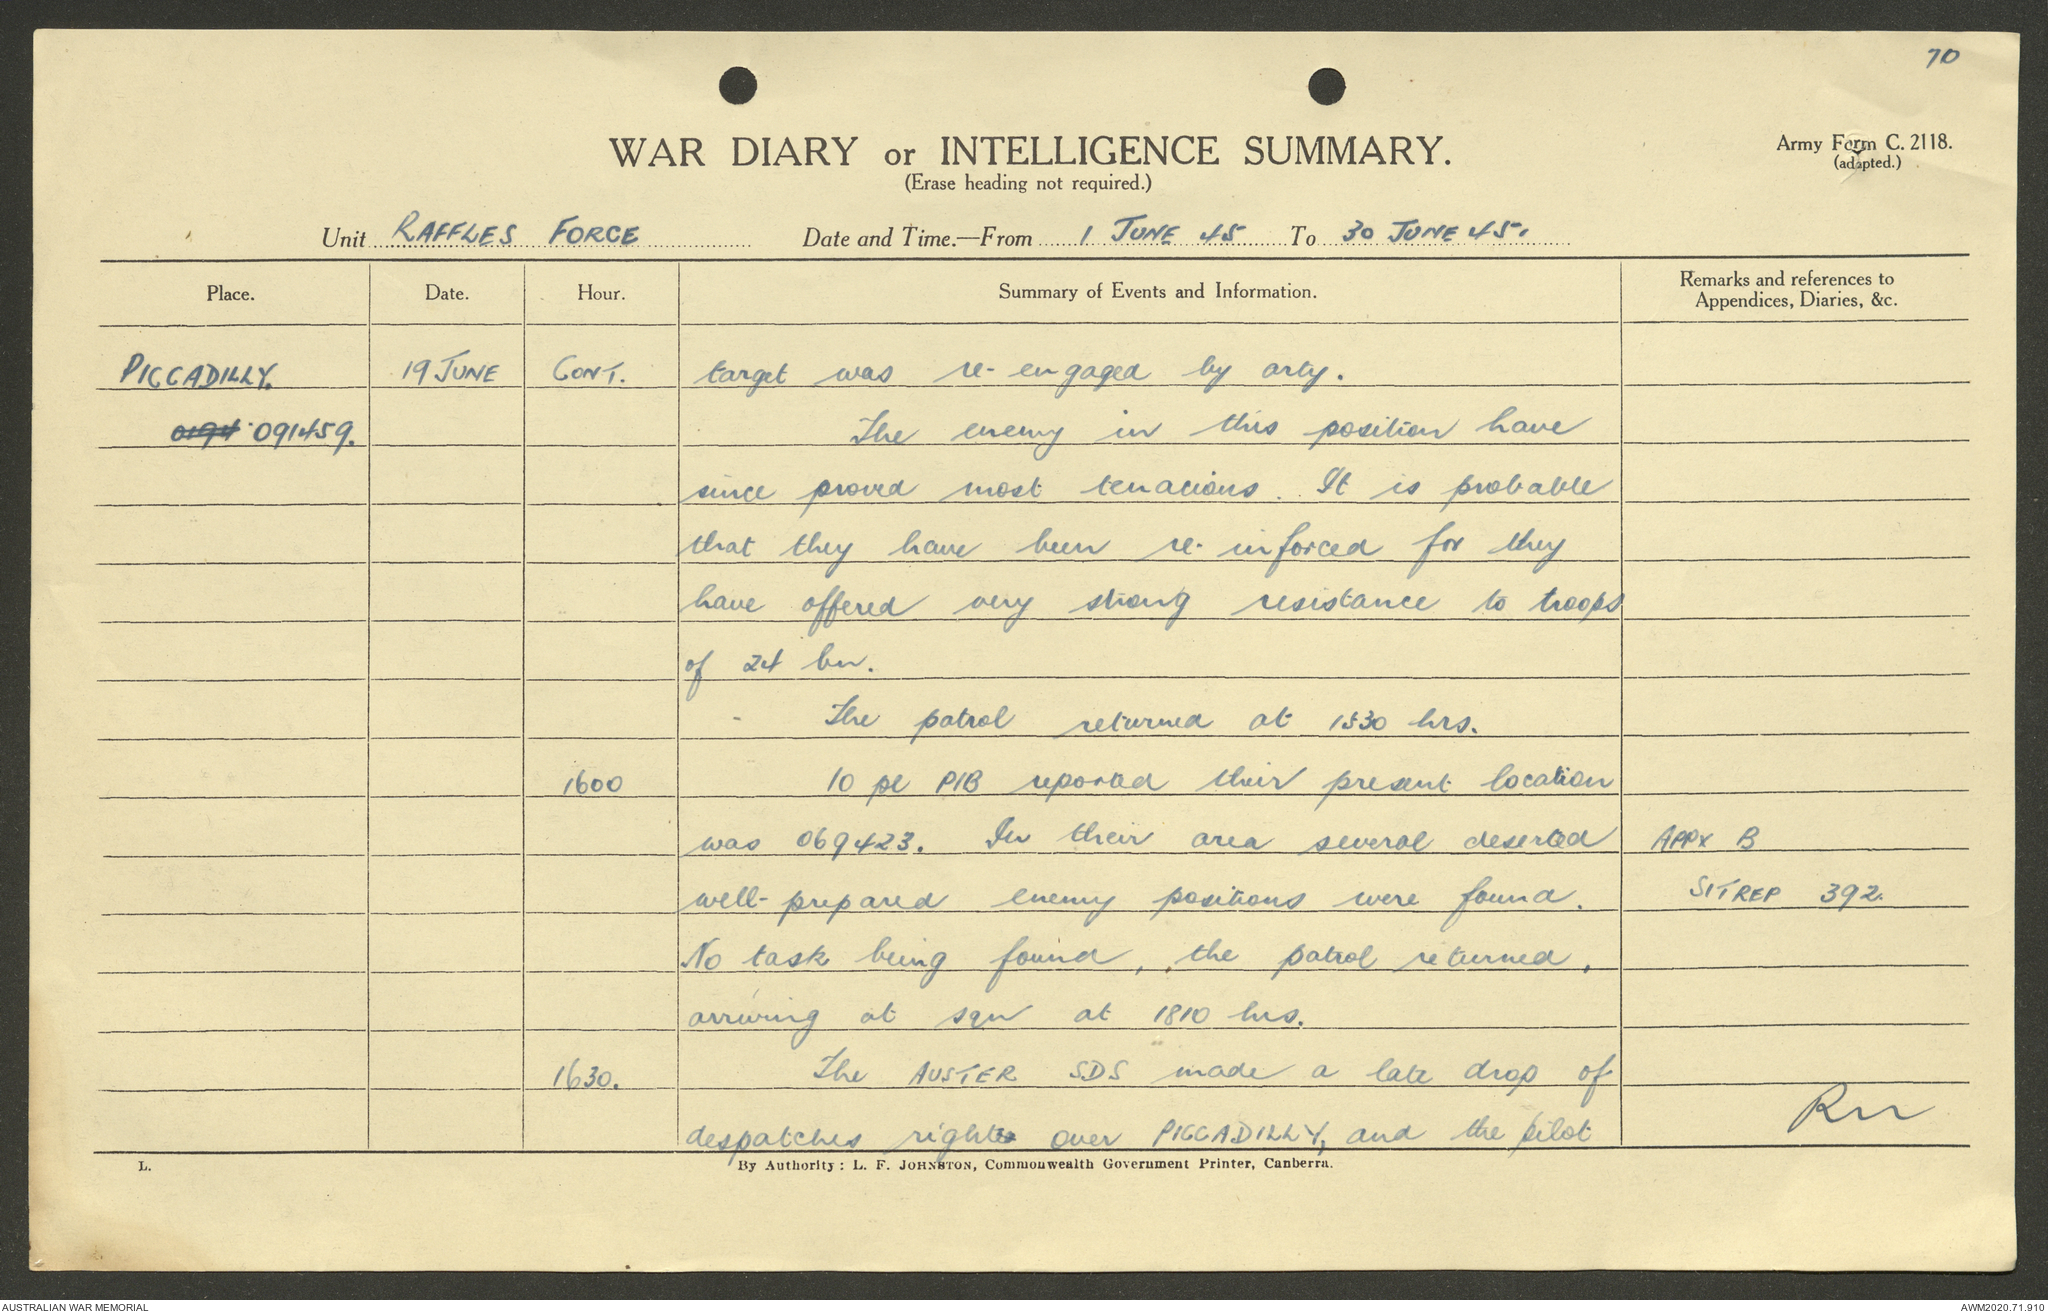 70
WAR DIARY or INTELLIGENCE SUMMARY.
Army Form C. 2118.
(adapted.)
(Erase heading not required.)
Unit RAFFLES FORCE Date and Time.—From 1 JUNE 45 To 30 JUNE 45.
Place. Date. Hour. Summary of Events and Information. Remarks and references to Appendices, Diaries, &c.
PICCADILLY. 19 JUNE CONT. target was re-engaged by arty.
0194 091459. The enemy in this position have
since proved most tenacious. It is probable
that they have been re-inforced for they
have offered very strong resistance to troops
of 24 bn.
The patrol returned at 1530 hrs.
1600 10 pl PIB reported their present location
was 069423. In their area several deserted APPX B
well-prepared enemy positions were found. SITREP 392.
No task being found, the patrol returned,
arriving at sqn at 1810 hrs.
1630. The AUSTER SDS made a late drop of
despatches right over PICCADILLY, and the pilot
L. By Authority: L. F. JOHNSTON, Commonwealth Government Printer, Canberra.
AUSTRALIAN WAR MEMORIAL AWM2020.71.910